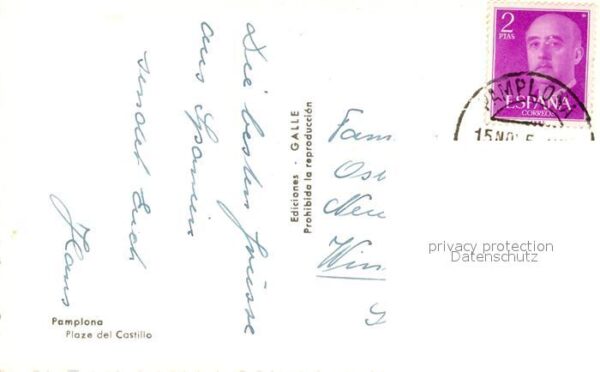 2
PTAS
ESPAÑA
CORREOS
PAMPLONA
15 NO
Die besten Grüsse
aus Spanien
sendet Euch
Hans
Ediciones - GALLE
Prohibida la reproducción
Fam
Os
Neu
Win
privacy protection
Datenschutz
Pamplona
Plaze del Castillo